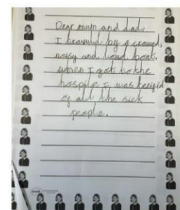 Dear mum and dad,
I travelled by a cramped,
noisy and loud boat,
when I got to the
hospital I was terrified
of all the sick
people.